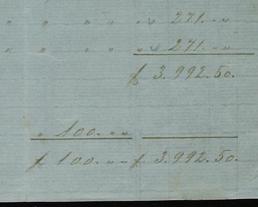 " " " " " " 271. " "
" " " " " " 271. " "
f 3.992.50.
" 100. " "
f 100. " " f 3.992.50.